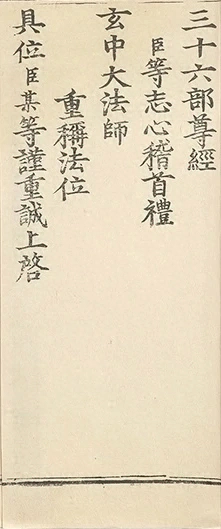 三十六部尊經
臣等志心稽首禮
玄中大法師
重稱法位
具位臣某等謹重誠上啓